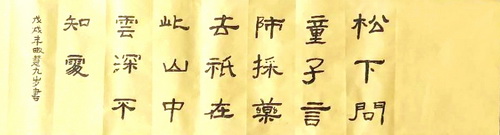 松下問
童子言
師採藥
去祇在
此山中
雲深不
知處
戊戌年
九岁書